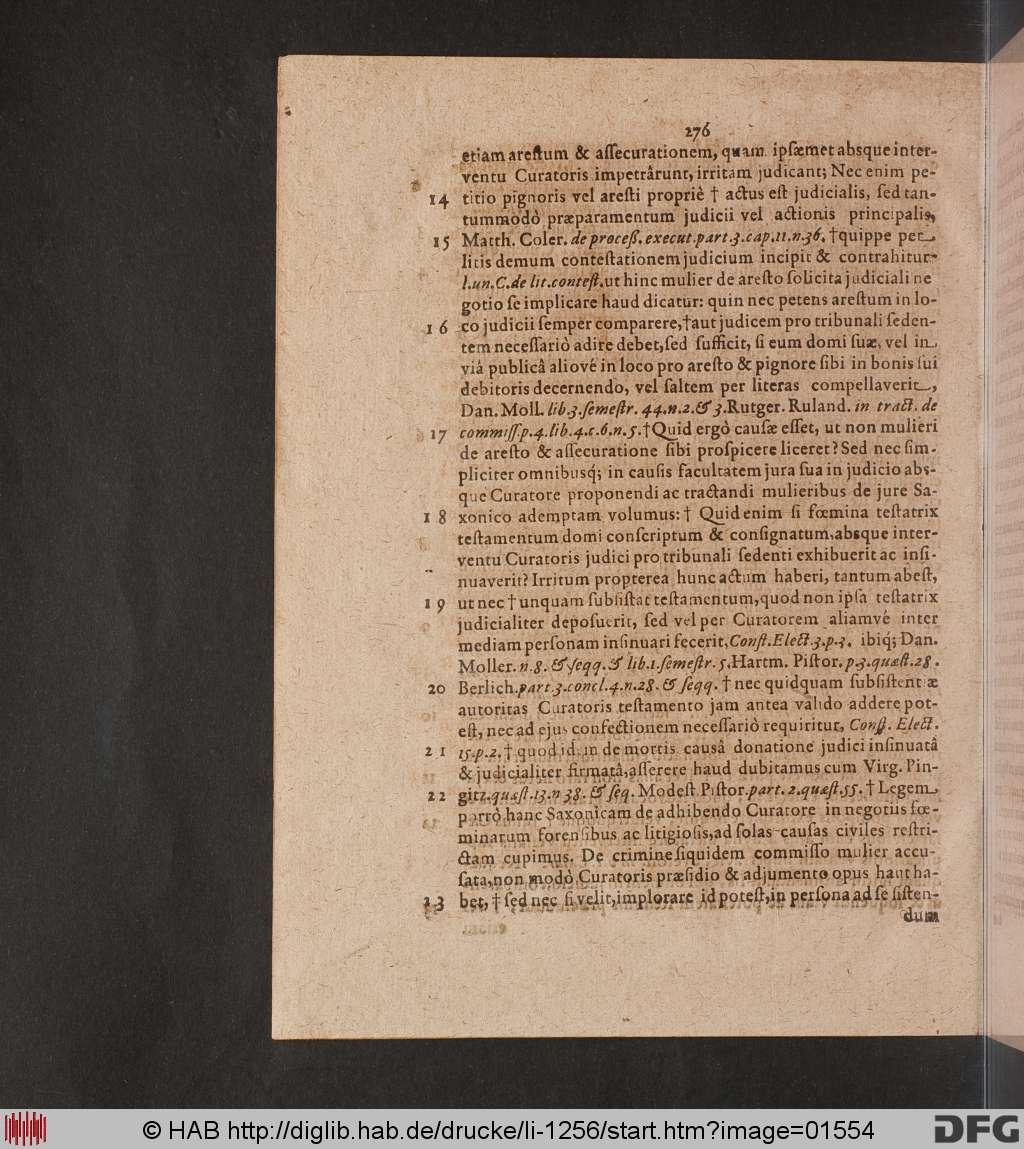 276
etiam arestum & assecurationem, quam ipsæmet absque inter-
ventu Curatoris impetrârunt, irritam judicant; Nec enim pe-
14 titio pignoris vel aresti propriè † actus est judicialis, sed tan-
tummodò præparamentum judicii vel actionis principalis,
15 Matth. Coler. de proceß. execut. part. 3. cap. 11. n. 36. † quippe per
litis demum contestationem judicium incipit & contrahitur
l. un. C. de lit. contest. ut hinc mulier de aresto solicita judiciali ne
gotio se implicare haud dicatur: quin nec petens arestum in lo-
16 co judicii semper comparere, † aut judicem pro tribunali seden-
tem necessariò adire debet, sed sufficit, si eum domi suæ, vel in
viâ publicâ aliové in loco pro aresto & pignore sibi in bonis sui
debitoris decernendo, vel saltem per literas compellaverit,
Dan. Moll. lib. 3. semestr. 44. n. 2. & 3. Rutger. Ruland. in tract. de
17 commiss. p. 4. lib. 4. c. 6. n. 5. † Quid ergò causæ esset, ut non mulieri
de aresto & assecuratione sibi prospicere liceret? Sed nec sim-
pliciter omnibusq́; in causis facultatem jura sua in judicio abs-
que Curatore proponendi ac tractandi mulieribus de jure Sa-
18 xonico ademptam volumus: † Quid enim si fœmina testatrix
testamentum domi conscriptum & consignatum, absque inter-
ventu Curatoris judici pro tribunali sedenti exhibuerit ac insi-
nuaverit? Irritum propterea hunc actum haberi, tantum abest,
19 ut nec † unquam subsistat testamentum, quod non ipsa testatrix
judicialiter deposuerit, sed vel per Curatorem aliamvé inter
mediam personam insinuari fecerit, Const. Elect. 3. p. 3. ibiq́; Dan.
Moller. n. 8. & seqq. & lib. 1. semestr. 5. Hartm. Pistor. p. 3. quæst. 28.
20 Berlich. part. 3. concl. 4. n. 28. & seqq. † nec quidquam subsistentiæ
autoritas Curatoris testamento jam antea valido addere pot-
est, nec ad ejus confectionem necessariò requiritur, Const. Elect.
21 15. p. 2. † quod idem de mortis causâ donatione judici insinuatâ
& judicialiter firmatâ, asserere haud dubitamus cum Virg. Pin-
22 gitz. quæst. 13. n 38. & seq. Modest. Pistor. part. 2. quæst. 55. † Legem
porrò hanc Saxonicam de adhibendo Curatore in negotiis fœ-
minarum forensibus ac litigiosis, ad solas causas civiles restri-
ctam cupimus. De crimine siquidem commisso mulier accu-
sata, non modò Curatoris præsidio & adjumento opus haut ha-
23 bet, † sed nec si velit, implorare id potest, in persona ad se sisten-
dum
© HAB http://diglib.hab.de/drucke/li-1256/start.htm?image=01554
DFG